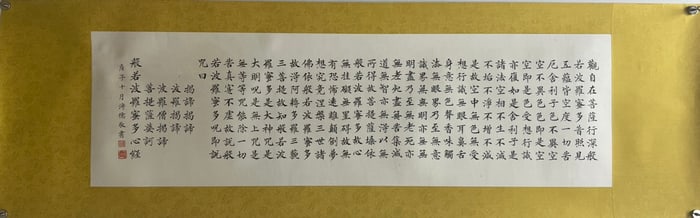 觀自在菩薩行深般
若波羅蜜多時照見
五蘊皆空度一切苦
厄舍利子色不異空
空不異色色即是空
空即是色受想行識
亦復如是舍利子是
諸法空相不生不滅
不垢不淨不增不減
是故空中無色無受
想行識無眼耳鼻舌
身意無色聲香味觸
法無眼界乃至無意
識界無無明亦無無
明盡乃至無老死亦
無老死盡無苦集滅
道無智亦無得以無
所得故菩提薩埵依
般若波羅蜜多故心
無罣礙無罣礙故無
有恐怖遠離顛倒夢
想究竟涅槃三世諸
佛依般若波羅蜜多
故得阿耨多羅三藐
三菩提故知般若波
羅蜜多是大神咒是
大明咒是無上咒是
無等等咒能除一切
苦真實不虛故說般
若波羅蜜多咒即說
咒曰
揭諦揭諦
波羅揭諦
波羅僧揭諦
菩提薩婆訶
般若波羅蜜多心經
庚子十月
敬書